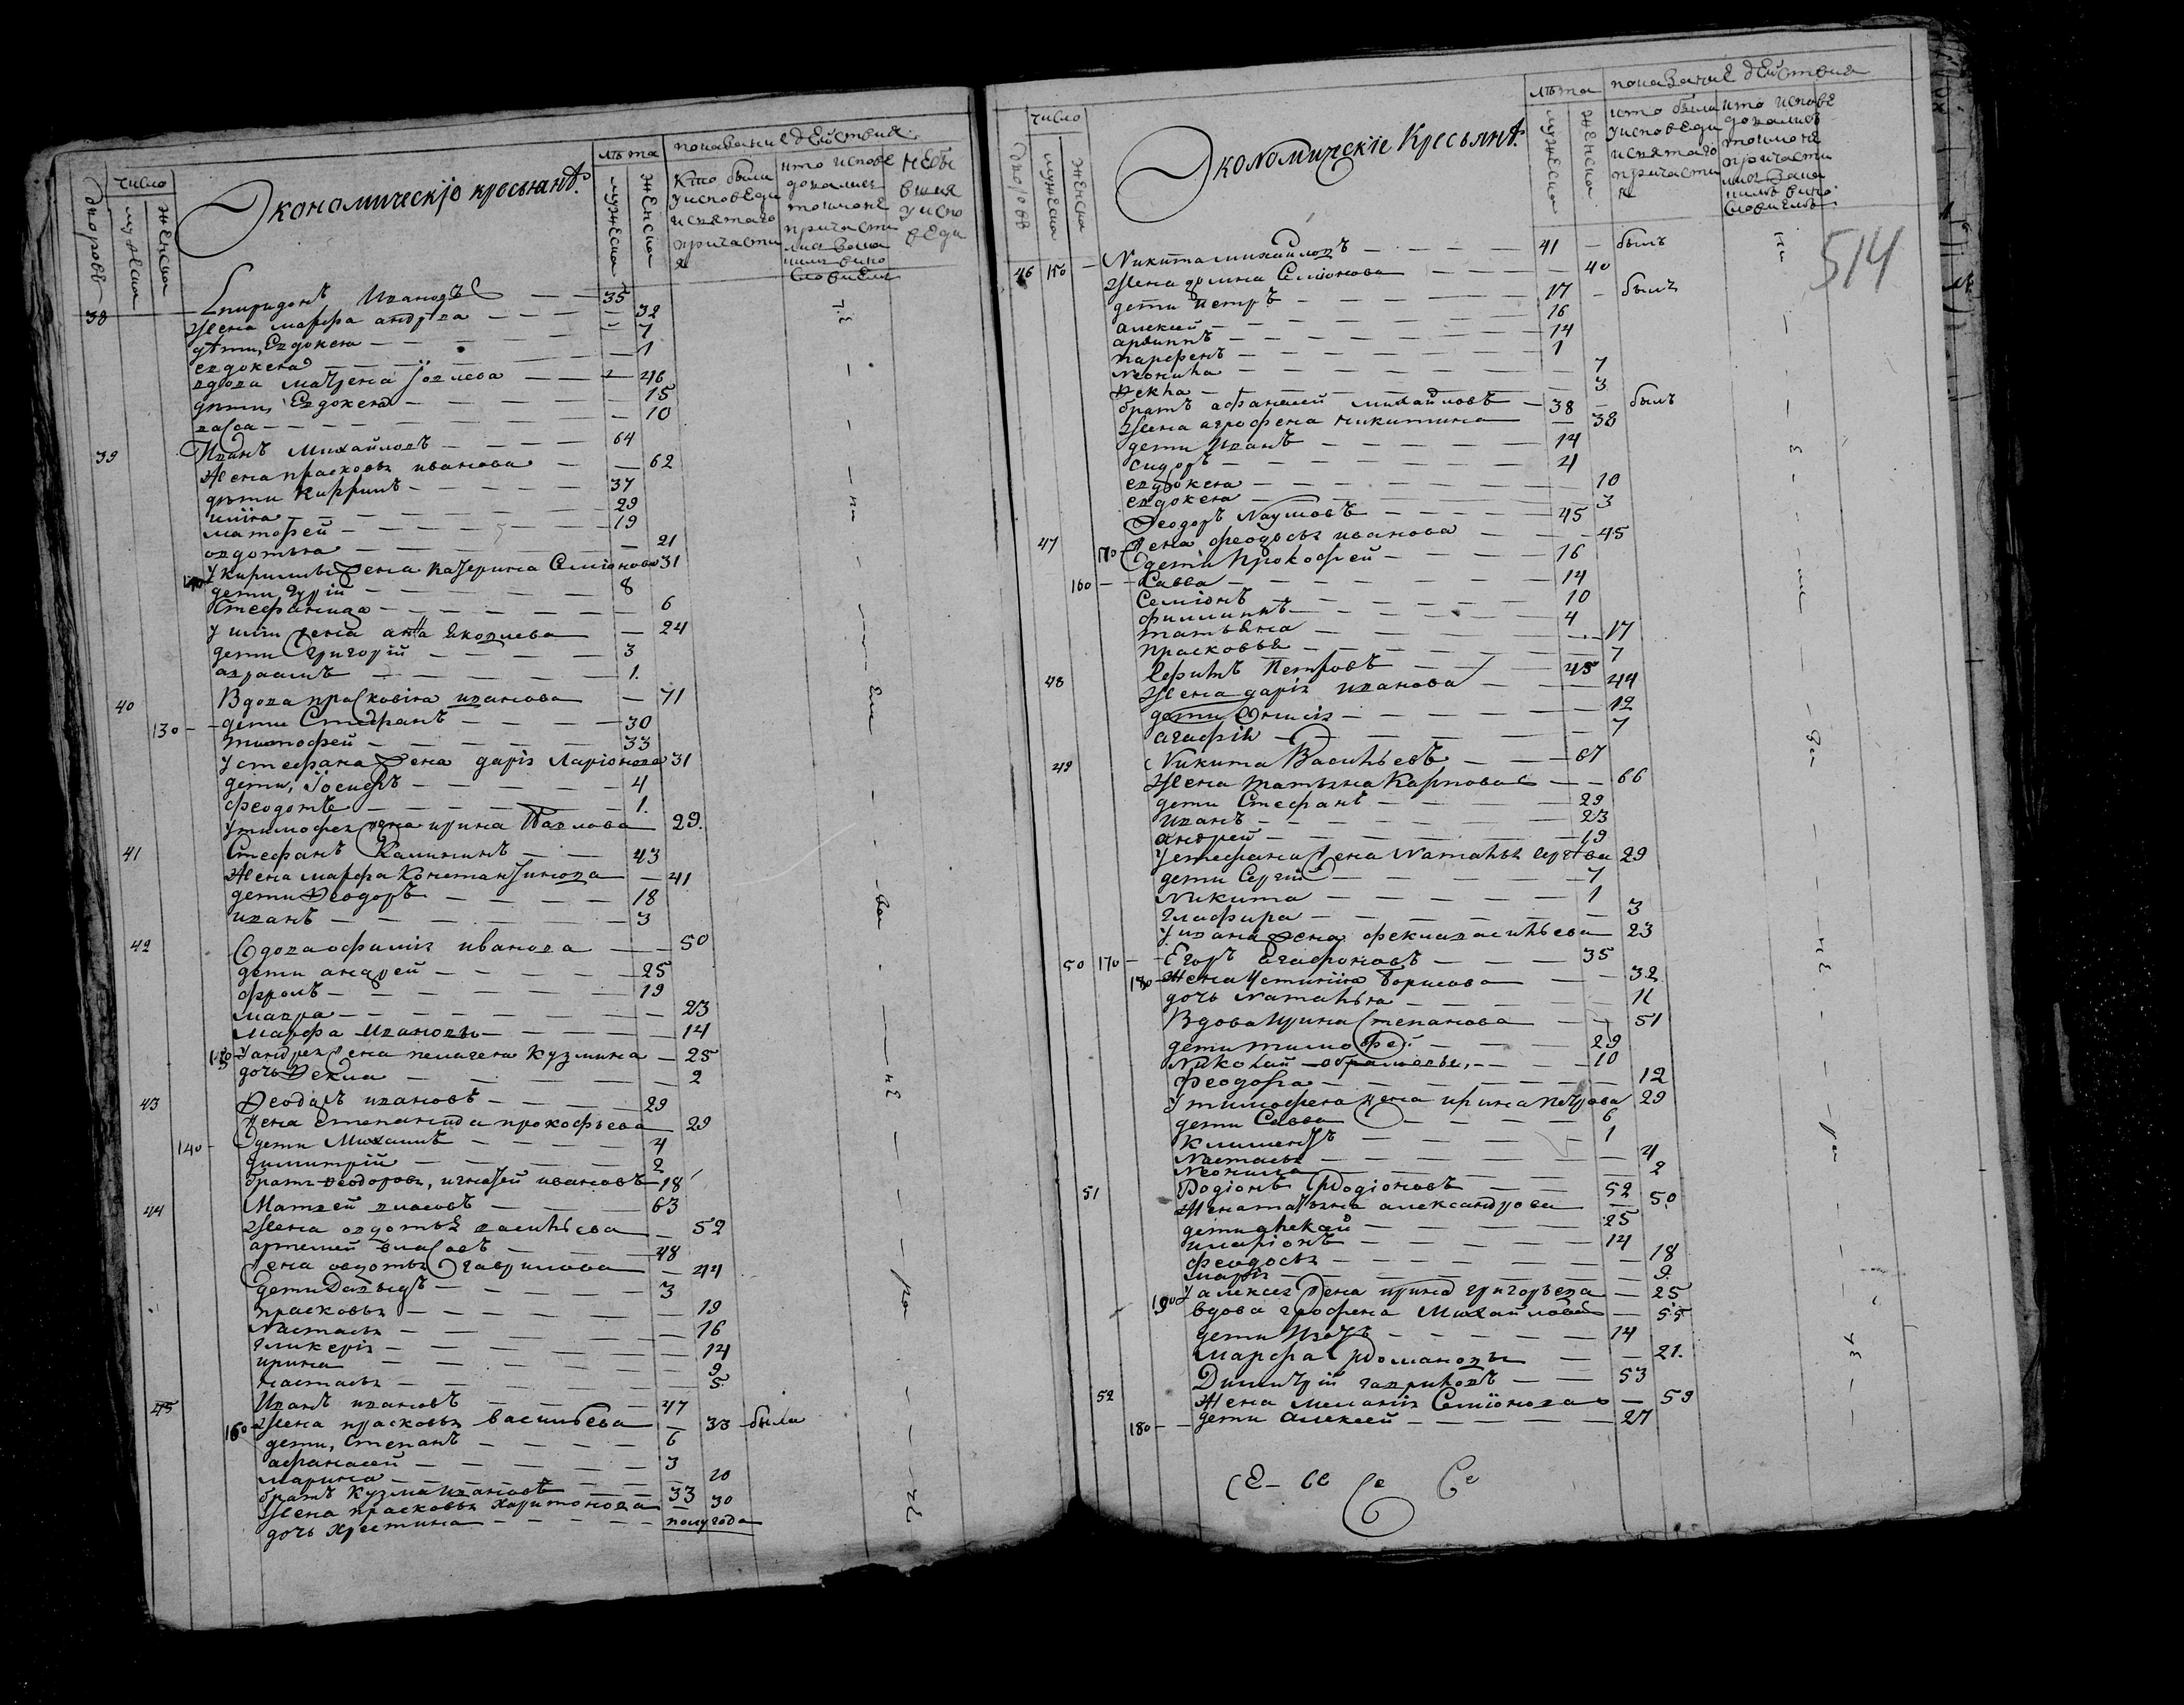 число
Экономическіе кресьянѣ
лѣта
показание действия
дворовъ
мужеска
женска
мужеска
женска
Кто были у исповеди и святаго причастия
кто исповедались токмо не причастились и за каким винословием
не бывшия у исповеди
38 Спиридонъ Ивановъ — — 35
Жена марфа андрева — — — 32
дѣти, Евдокея — — — 7
евдокея — — — 1
вдова матрена — — 46
дѣти, Евдокея — — — 15
васса — — — 10
39 Иванъ Михайловъ — — — 64
Жена прасковья иванова — — 62
дѣти Кирилъ — — — 37
илия — — — 29
матфей — — — 19
овдотья — — — 21
у кирилы жена катерина Семіонова 31
дети гурій — — — 8
Стефанида — — — 6
у илии жена анна Яковлева — 24
дети григорій — — — 3
авраамъ — — — 1.
40 Вдова прасковия иванова — 71
130 — дети Стефанъ — — — 30
тимофей — — — 33
у стефана жена дарія Ларіонова 31
дети, Іосифъ — — — 4
феодотъ — — — 1.
у тимофея жена ирина Павлова 29.
41 Стефанъ Калининъ — — 43
Жена марфа Константинова — 41
дети Феодоръ — — — 18
иванъ — — — 3
42 Вдова офимія иванова — — 50
дети андрей — — — 25
фролъ — — — 19
мавра — — — 23
Марфа Ивановы — — — 14
у андрея жена пелагея кузмина — 25
дочь Фекла — — — 2
43 Феодоръ ивановъ — — — 29
Жена степанида прокофьева 29
140 — дети Михаилъ — — — 4
димитрій — — — 2
братъ Феодоровъ, игнатей ивановъ — 18
44 Матвей власовъ — — — 63
Жена овдотья васильева — 52
артемей власовъ — — — 48
Жена овдотья гаврилова — 44
дети Давыдъ — — — 3
прасковья — — — 19
Настасья — — — 16
гликерія — — — 14
ирина — — — 9
настасья — — — 5
45 Иванъ ивановъ — — — 47
160 Жена прасковья васильева — 33 — была
дети, Степанъ — — — 6
афанасей — — — 3
марина — — — 10
братъ кузма ивановъ — — 33
Жена прасковья харитонова — 30
дочь христина — — — полугода
число
Экономическіе Кресьянѣ.
лѣта
показание действия
дворовъ
мужеска
женска
мужеска
женска
кто были у исповеди и святаго причастия
кто исповедались токмо не причастились и за каким виносло­вием
514
46 150 — Никита михайловъ — — — 41 — былъ
Жена домна Семионова — — — 40
дети петръ — — — 17 — былъ
алексей — — — 16
архиппъ — — — 14
парфенъ — — — 1
Неонила — — — 7
Фекла — — — 3
братъ афанасей михайловъ — 38 — былъ
Жена агрофена никитина — 38
дети Иванъ — — — 14
сидоръ — — — 4
евдокея — — — 10
евдокея — — — 3
47 Феодоръ Наумовъ — — — 45
170 Жена феодосья иванова — — 45
дети Прокофей — — — 16
160 — — Савва — — — 14
Семіонъ — — — 10
филиппъ — — — 4
татьяна — — — 17
прасковья — — — 7
48 Ефимъ Петровъ — — 45
Жена дарія иванова — — 44
дети Анисія — — — 12
агафія — — — 7
49 Никита Васильевъ — — 67
Жена татьяна Карпова — — 66
дети Стефанъ — — — 29
иванъ — — — 23
Андрей — — — 19
у стефана жена Наталья сергѣева 29
дети Сергій — — — 7
Никита — — — 1
глафира — — — 3
у ивана жена фекла васильева 23
50 170 — Егоръ Агафоновъ — — — 35
180 — Жена устиния Борисова — 32
дочь Наталья — — — 11
Вдова Ирина Степанова — — 51
дети тимофей — — — 29
Николай абрамовы, — — — 10
Феодора — — — 12
у тимофея жена ирина петрова 29
дети Савва — — — 6
климентъ — — — 1
Настасья — — — 4
Неонила — — — 2
51 Родіонъ Родіоновъ — — 52
Жена татьяна александрова — 50
дети алексей — — — 25
иларіонъ — — — 14
феодосья — — — 18
марія — — — 9.
190 у алексея жена ирина григорьева — 25
вдова агрофена Михайлова — 55
дети Игнатъ — — — 14
Марфа Романовы — — 21.
52 Димитрій гавриловъ — — 53
Жена меланія Семіонова — 59
180 — — дети алексей — — — 27
се — се се се